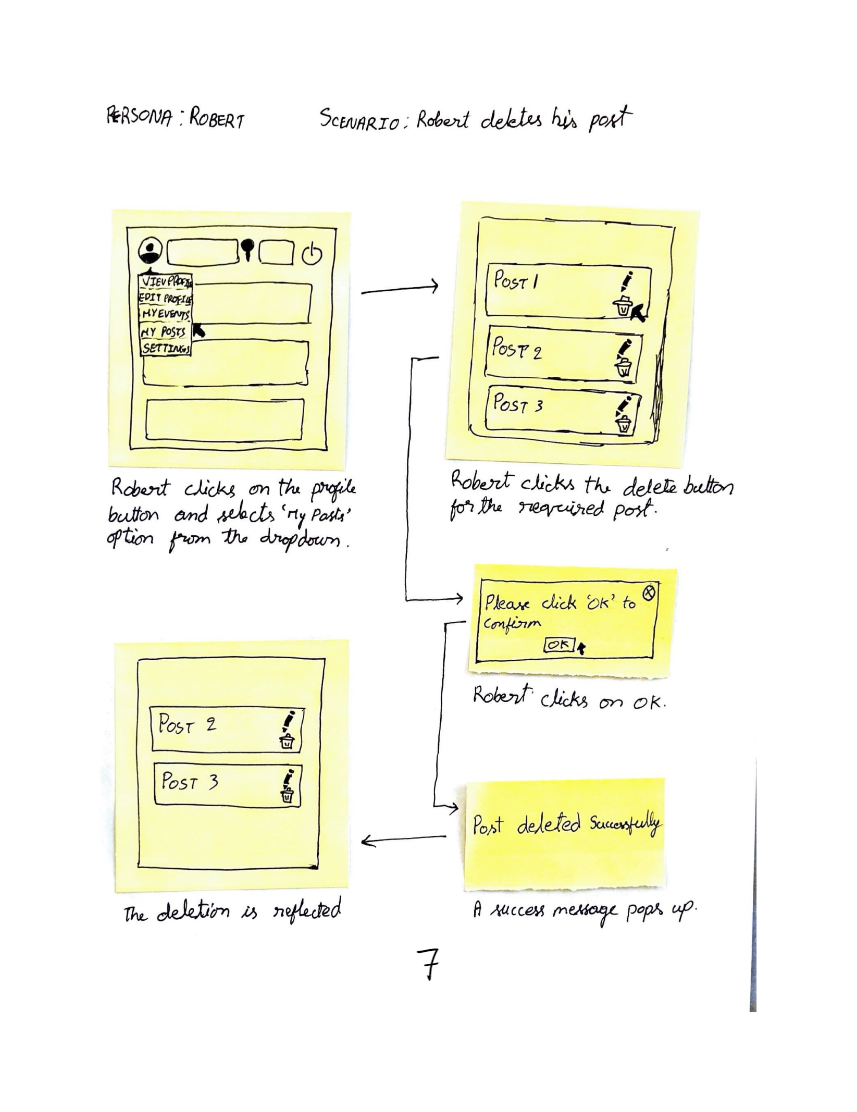 PERSONA : ROBERT
SCENARIO : Robert deletes his post
VIEW PROFILE
EDIT PROFILE
MY EVENTS
MY POSTS
SETTINGS
Robert clicks on the profile
button and selects 'My Posts'
option from the dropdown.
POST 1
POST 2
POST 3
Robert clicks the delete button
for the required post.
Please click 'OK' to
confirm
OK
Robert clicks on OK.
Post deleted Successfully
A success message pops up.
POST 2
POST 3
The deletion is reflected
7